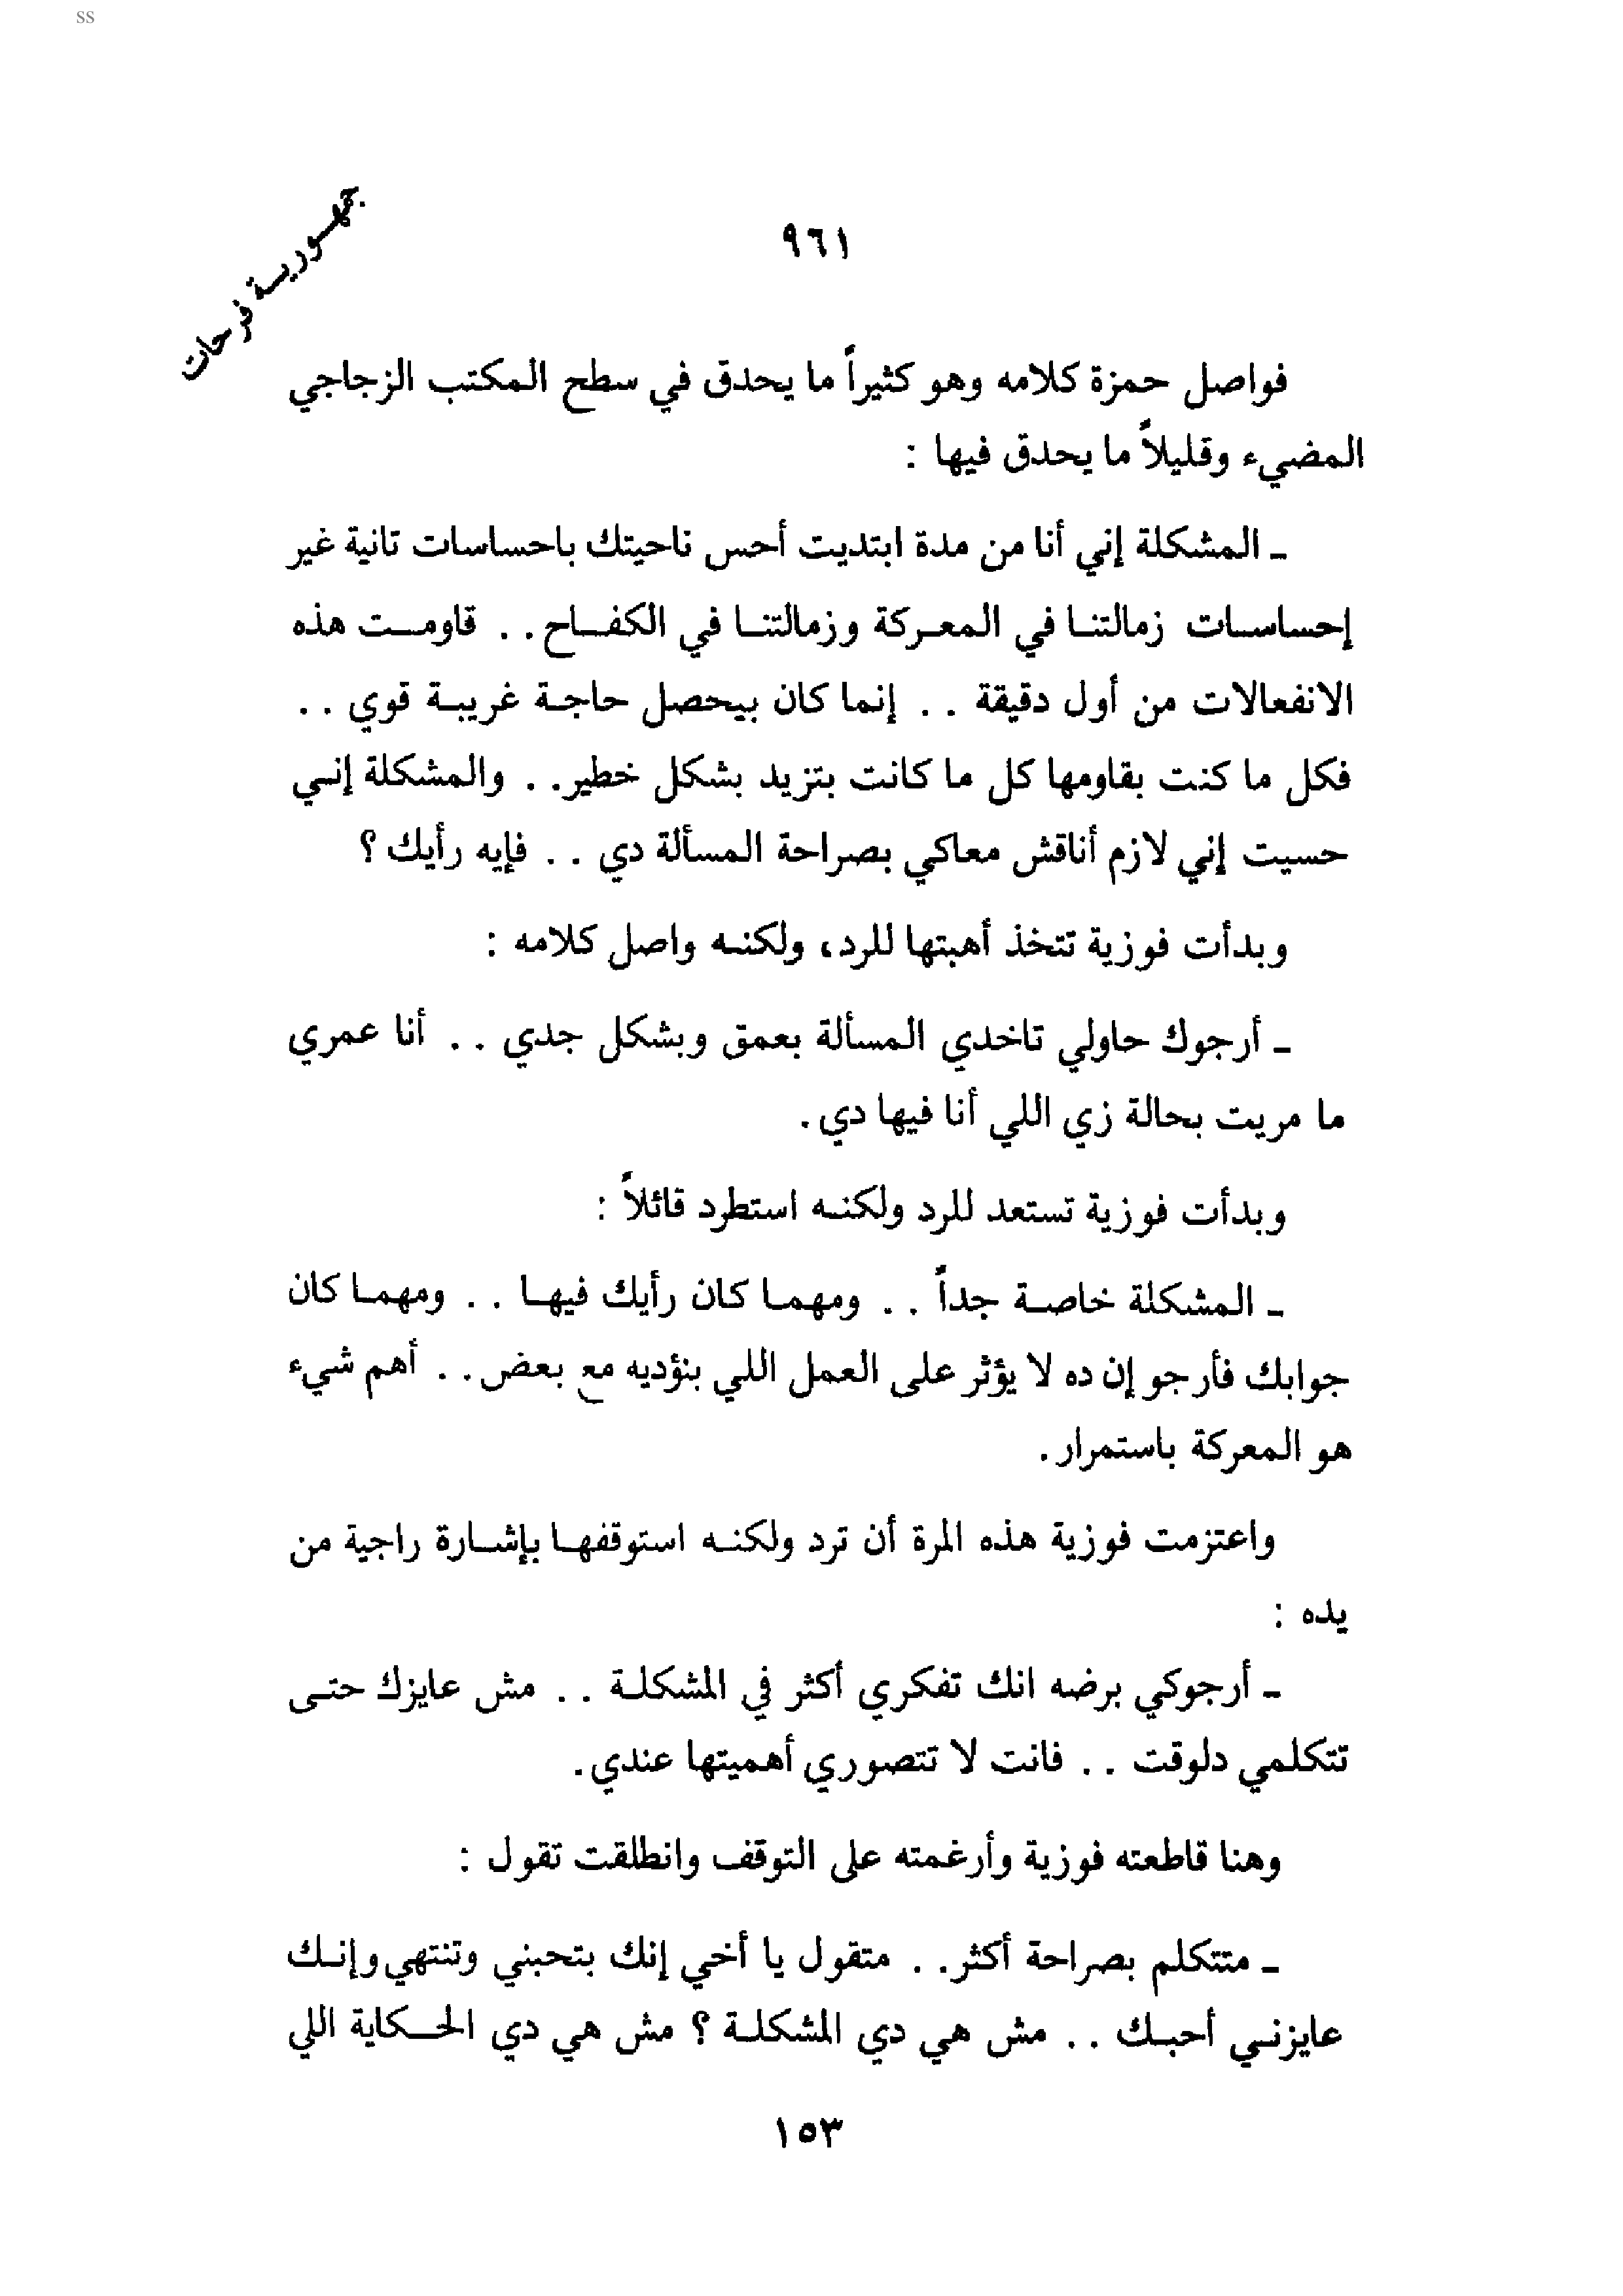 SS
جمهورية فرحات
٩٦١
فواصل حمزة كلامه وهو كثيراً ما يحدق في سطح المكتب الزجاجي
المضيء وقليلاً ما يحدق فيها :
ـ المشكلة إني أنا من مدة ابتديت أحس ناحيتك باحساسات تانية غير
إحساسات زمالتنا في المعركة وزمالتنا في الكفاح . . قاومت هذه
الانفعالات من أول دقيقة . . إنما كان بيحصل حاجة غريبة قوي . .
فكل ما كنت بقاومها كل ما كانت بتزيد بشكل خطير . . والمشكلة إني
حسيت إني لازم أناقش معاكي بصراحة المسألة دي . . فإيه رأيك ؟
وبدأت فوزية تتخذ أهبتها للرد، ولكنه واصل كلامه :
ـ أرجوك حاولي تاخدي المسألة بعمق وبشكل جدي . . أنا عمري
ما مريت بحالة زي اللي أنا فيها دي .
وبدأت فوزية تستعد للرد ولكنه استطرد قائلاً :
ـ المشكلة خاصة جداً . . ومهما كان رأيك فيها . . ومهما كان
جوابك فأرجو إن ده لا يؤثر على العمل اللي بنؤديه مع بعض . . أهم شيء
هو المعركة باستمرار .
واعتزمت فوزية هذه المرة أن ترد ولكنه استوقفها بإشارة راجية من
يده :
ـ أرجوكي برضه انك تفكري أكثر في المشكلة . . مش عايزك حتى
تتكلمي دلوقت . . فانت لا تتصوري أهميتها عندي .
وهنا قاطعته فوزية وأرغمته على التوقف وانطلقت تقول :
ـ متتكلم بصراحة أكثر . . متقول يا أخي إنك بتحبني وتنتهي وإنك
عايزني أحبك . . مش هي دي المشكلة ؟ مش هي دي الحكاية اللي
١٥٣